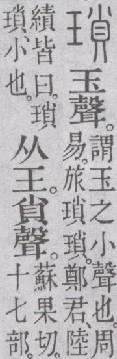 瑣
玉聲。
謂玉之小聲也。周
易。旅瑣瑣。鄭君、陸
績皆曰。瑣
瑣、小也。
从王。𧴪聲。
蘇果切。
十七部。